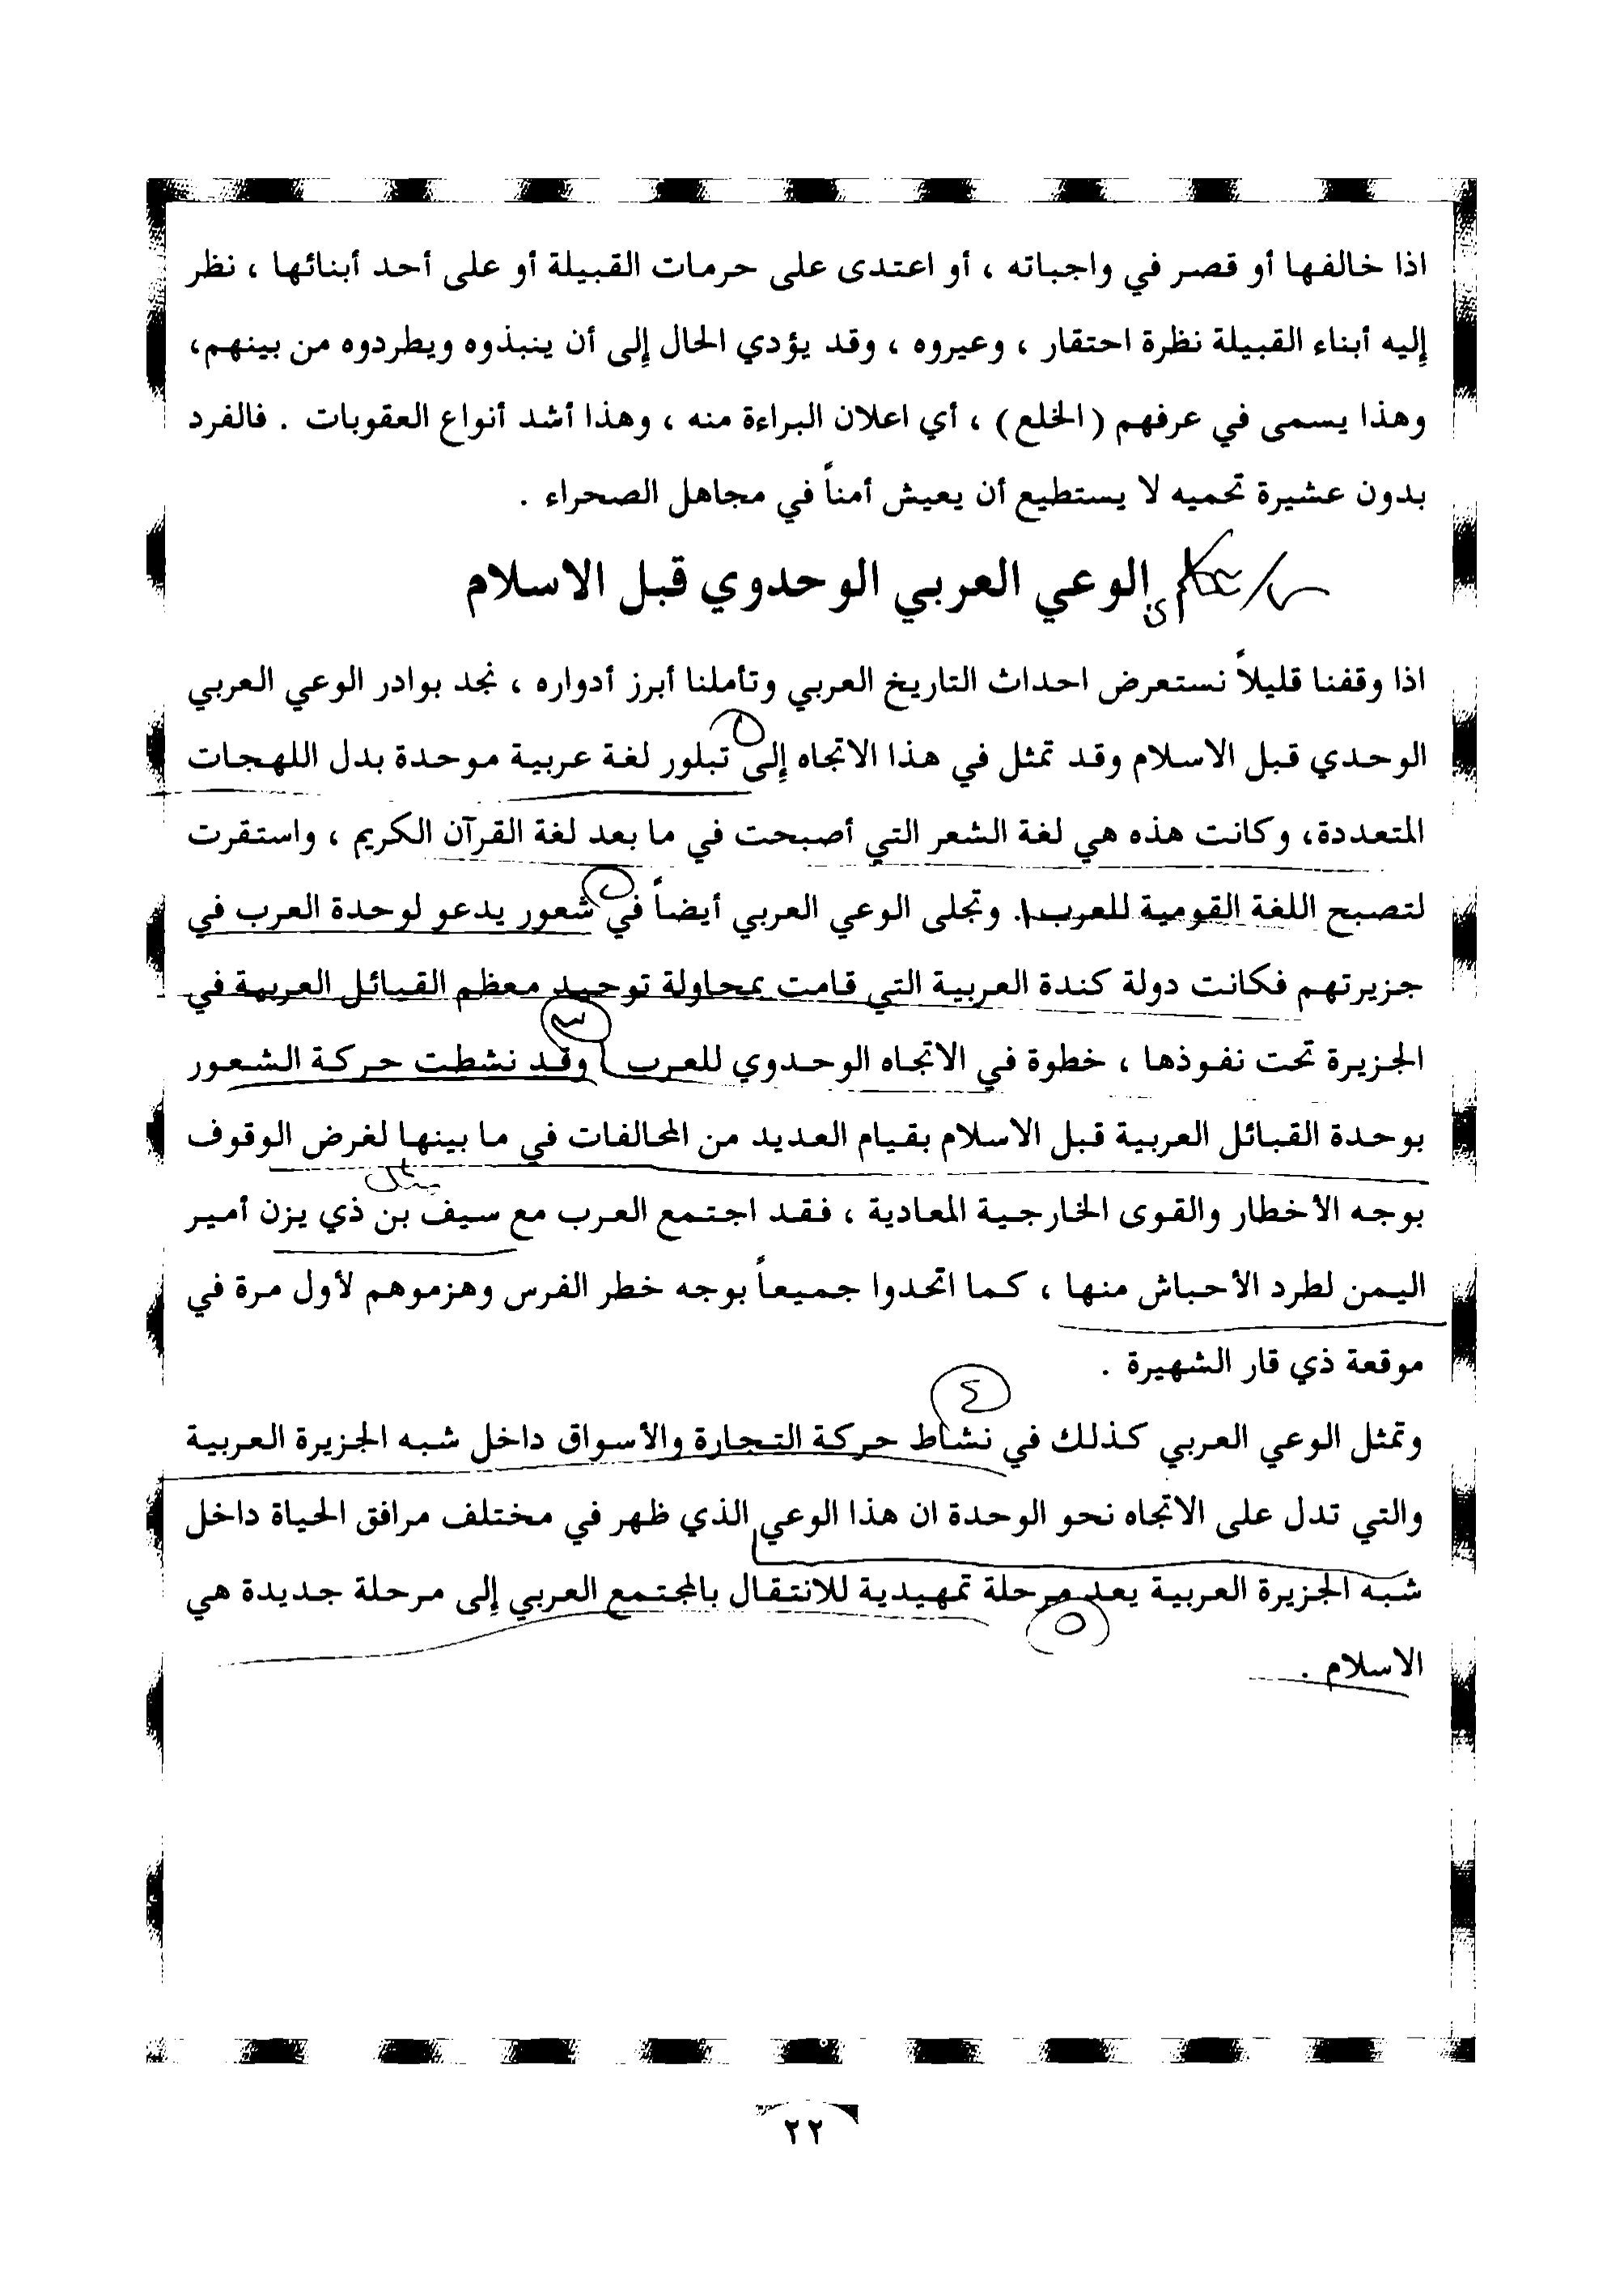 اذا خالفها أو قصر في واجباته ، أو اعتدى على حرمات القبيلة أو على أحد أبنائها ، نظر
إليه أبناء القبيلة نظرة احتقار ، وعيروه ، وقد يؤدي الحال إلى أن ينبذوه ويطردوه من بينهم،
وهذا يسمى في عرفهم (الخلع) ، أي اعلان البراءة منه ، وهذا أشد أنواع العقوبات . فالفرد
بدون عشيرة تحميه لا يستطيع أن يعيش أمناً في مجاهل الصحراء .
الوعي العربي الوحدوي قبل الاسلام
اذا وقفنا قليلاً نستعرض احداث التاريخ العربي وتأملنا أبرز أدواره ، نجد بوادر الوعي العربي
الوحدي قبل الاسلام وقد تمثل في هذا الاتجاه إلى تبلور لغة عربية موحدة بدل اللهجات
المتعددة، وكانت هذه هي لغة الشعر التي أصبحت في ما بعد لغة القرآن الكريم ، واستقرت
لتصبح اللغة القومية للعرب. وتجلى الوعي العربي أيضاً في شعور يدعو لوحدة العرب في
جزيرتهم فكانت دولة كندة العربية التي قامت بمحاولة توحيد معظم القبائل العربية في
٣
الجزيرة تحت نفوذها ، خطوة في الاتجاه الوحدوي للعرب وقد نشطت حركة الشعور
بوحدة القبائل العربية قبل الاسلام بقيام العديد من المحالفات في ما بينها لغرض الوقوف
بوجه الأخطار والقوى الخارجية المعادية ، فقد اجتمع العرب مع سيف بن ذي يزن أمير
اليمن لطرد الأحباش منها ، كما اتحدوا جميعاً بوجه خطر الفرس وهزموهم لأول مرة في
موقعة ذي قار الشهيرة .
٤
وتمثل الوعي العربي كذلك في نشاط حركة التجارة والأسواق داخل شبه الجزيرة العربية
والتي تدل على الاتجاه نحو الوحدة ان هذا الوعي الذي ظهر في مختلف مرافق الحياة داخل
شبه الجزيرة العربية يعد مرحلة تمهيدية للانتقال بالمجتمع العربي إلى مرحلة جديدة هي
٥
الاسلام .
٢٢